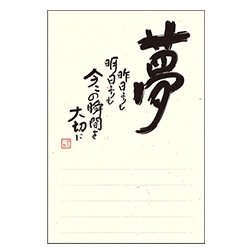 夢
昨日より
明日よりも
今この瞬間を
大切に